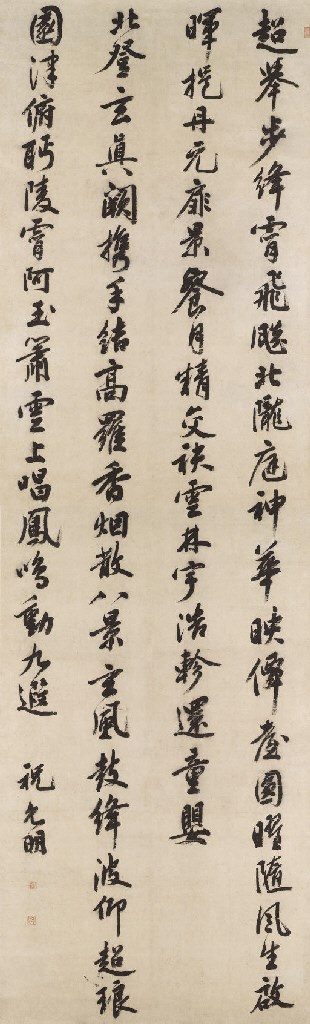 超舉步絳霄飛飈北壠庭神華映僊臺圓曜隨風生啟
暉挹丹元扉景餐月精交袂雲林宇浩軫還童嬰
北登玄真闕携手結高羅香烟散八景玄風鼓絳波仰超琅
園津俯眄陵霄阿玉簫雲上唱鳳鳴動九遐
祝允明